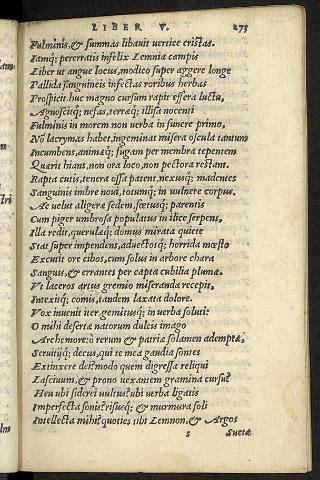 LIBER V. 273
Fulminis, & summas libauit uertice cristas.
Iamq; pererratis infelix Lemnia campis
Liber ut angue locus, modico super aggere longe
Pallida sanguineis infectas roribus herbas
Prospicit. huc magno cursum rapit effera luctu,
Agnoscitq; nefas, terræq; illisa nocenti
Fulminis in morem non uerba in funere primo,
Nõ lacrymas habet, ingeminat misera oscula tantum
Incumbens, animæq; fugam per membra tepentem
Quærit hians, non ora loco, non pectora restant.
Rapta cutis, tenera ossa patent, nexusq; madentes
Sanguinis imbre noui, totumq; in uulnere corpus.
Ac uelut aligeræ sedem, fœtusq; parentis
Cum piger umbrosa populatus in ilice serpens,
Illa redit, querulæq; domus mirata quiete
Stat super impendens, aduectosq; horrida mœsto
Excutit ore cibos, cum solus in arbore chara
Sanguis, & errantes per capta cubilia plumæ.
Vt laceros artus gremio miseranda recepit,
Intexitq; comis, tandem laxata dolore.
Vox inuenit iter, gemitusq; in uerba soluti:
O mihi desertæ natorum dulcis imago
Archemore: ô rerum & patriæ solamen ademptæ,
Seruitijq; decus, qui te mea gaudia sontes
Extinxere dei: modo quem digressa reliqui
Lasciuum, & prono uexantem gramina cursu?
Heu ubi siderei uultus? ubi uerba ligatis
Imperfecta sonis? risusq; & murmura soli
Intellecta mihi? quoties tibi Lemnon, & Argos
s Suetæ